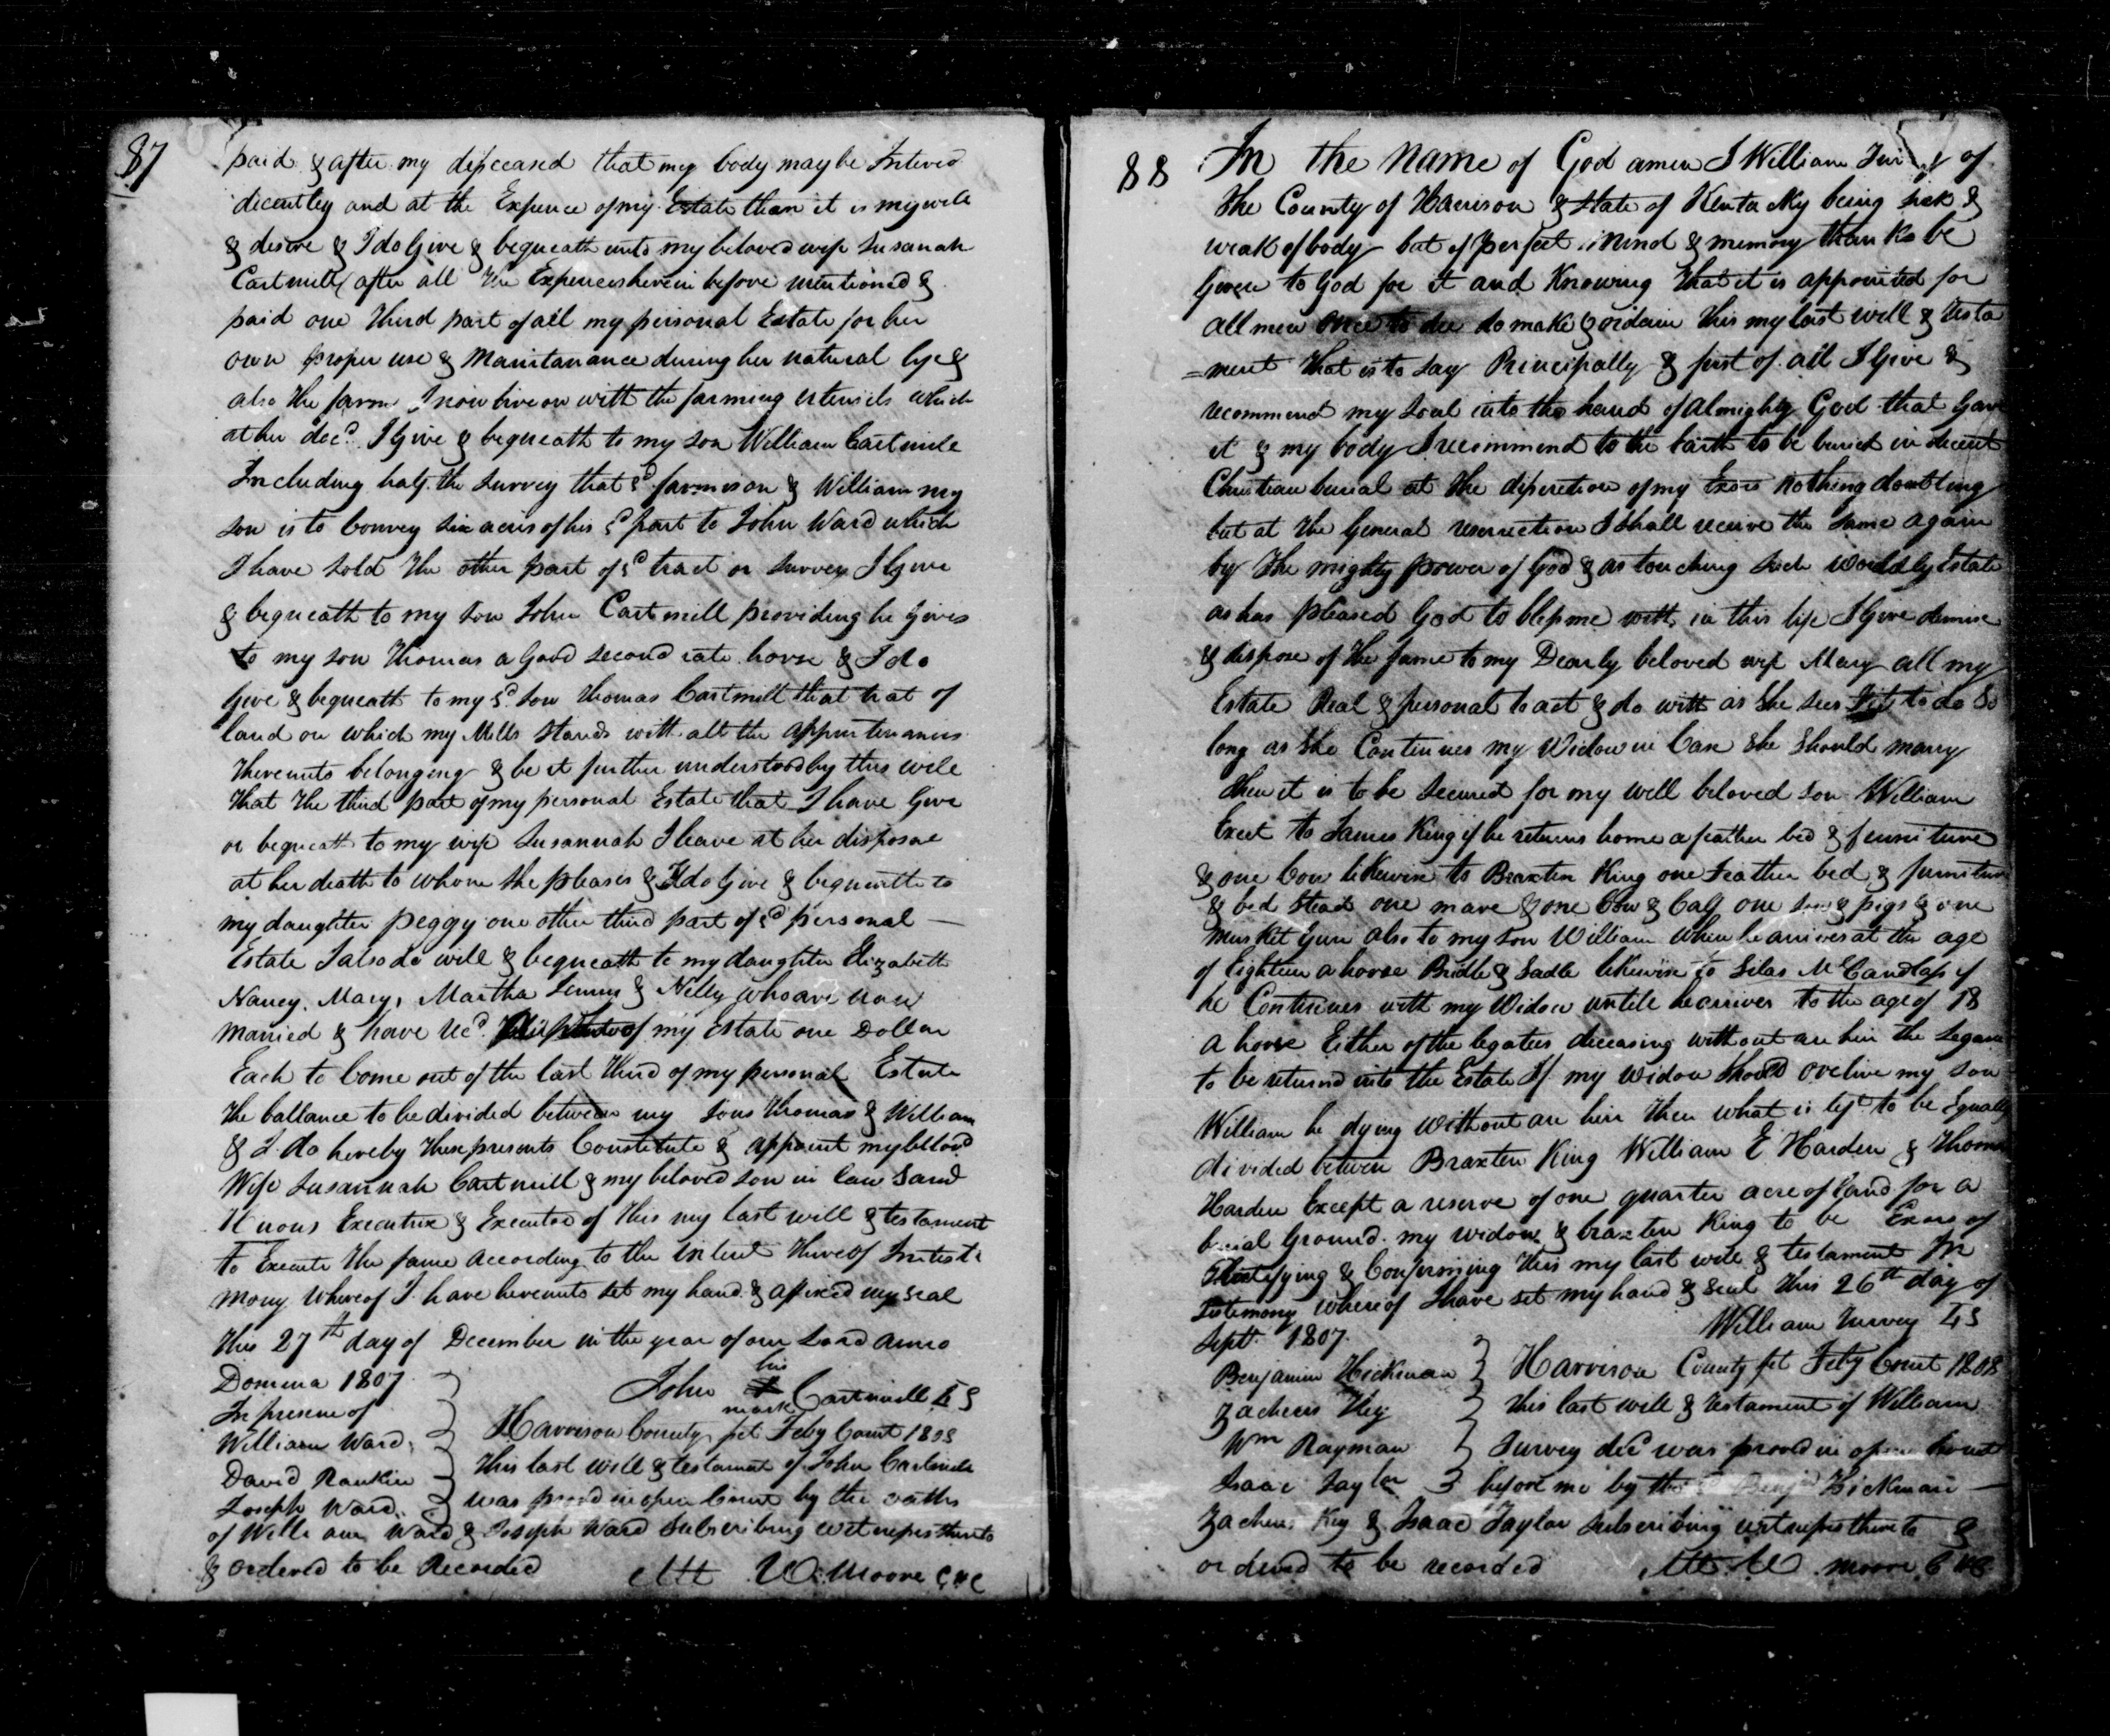 87
paid & after my disceased that my body may be Intered
dicentley and at the Expence of my Estate than it is my will
& desire & I do Give & bequeath unto my beloved wife Susanah
Cartmill after all the Expences herein before mentioned &
paid one third part of all my personal Estate for her
own proper use & Maintanance during her natural life &
also the farm I now live on with the farming utensils which
at her decd. I Give & bequeath to my son William Cartmill
Including half the Survey that sd. farm is on & William my
son is to Convey six acres of his sd part to John Ward which
I have sold the other part of sd tract or Survey I Give
& bequeath to my son John Cartmill providing he Gives
to my son Thomas a Good second rate horse & I do
Give & bequeath to my sd. son Thomas Cartmill that trat of
land on which my Mills Stands with all the appurtenances
thereunto belonging & be it further understood by this will
that the third part of my personal Estate that I have Give
or bequeath to my wife Susannah I leave at her disposal
at her death to whom she pleases & I do Give & bequeath to
my daughter peggy one other third part of sd personal
Estate I also do will & bequeath to my daughter Elizabeth
Nancy, Mary, Martha & Nelly who are now
married & have Recd. of my Estate one Dollar
Each to Come out of the last third of my personal Estate
the ballance to be divided between my sons Thomas & William
& I do hereby these presents Constitute & appoint my beloved
Wife Susannah Cartmill & my beloved son in law
Executrix & Executor of this my last will & testament
To Execute the same according to the intent thereof In testi
mony whereof I have hereunto set my hand & affixed my seal
this 27th day of December in the year of our Lord anno
Domina 1807
his
John Cartmill LS
mark
In presene of
William Ward
David Rankin
Joseph Ward
Harrison County sct Feby Court 1808
This last will & testament of John Cartmill
was proved in open Court by the oaths
of William Ward & Joseph Ward Subscribing witnesses thereto
& ordered to be Recorded
Att W. Moore CHC
88
In the name of God amen I William of
the County of Harrison & State of Kentucky being sick &
weak of body but of perfect mind & memory thanks be
Given to God for it and Knowing that it is appointed for
all men once to die do make & ordain this my last will & testa
=ment that is to say Principally & first of all I Give &
recommend my soul into the hand of almighty God that Gave
it & my body I recommend to the Earth to be buried in decent
Christian burial at the discretion of my Exors nothing doubting
but at the General resurrection I shall receive the same again
by the mighty power of God & as touching such worldly Estate
as has pleased God to bless me with in this life I Give demise
& dispose of the same to my Dearly beloved wife Mary all my
Estate Real & personal to act & do with as She sees fit to do So
long as She Continues my Widow in Case She Should marry
then it is to be Secured for my well beloved son William
Exect to James King if he returns home a feather bed & furniture
& one Cow likewise to Braxten King one Feather bed & furniture
& bed Stead one mare & one Cow & Calf one sow & pigs & one
musket Gun also to my son William when he arrives at the age
of Eighteen a horse Bridle & Sadle likewise to Silas McCandlass if
he Continues with my Widow untill he arrives to the age of 18
a horse Either of the legatees deceasing without an heir the Legacie
to be returnd into the Estate If my widow Should ovelive my Son
William he dying without an heir then what is left to be Equally
divided between Braxten King William E Harden & Thomas
Harden Except a reserve of one quarter acre of land for a
burial Ground. my widow & braxten King to be Exors of
Ratifying & Confirming this my last will & testament In
testimony whereof I have set my hand & seal this 26th day of
Sept. 1807.
William Survey LS
Benjamin Hickman
Zacheus Key
Wm Rayman
Isaac Taylor
Harrison County sct Feby Court 1808
this last will & testament of William
Survey decd was proved in open Court
before me by the Benjn Hickman
Zacheus Key & Isaac Taylor Subscribing witnesses thereto &
ordered to be recorded
Att W. Moore CHC